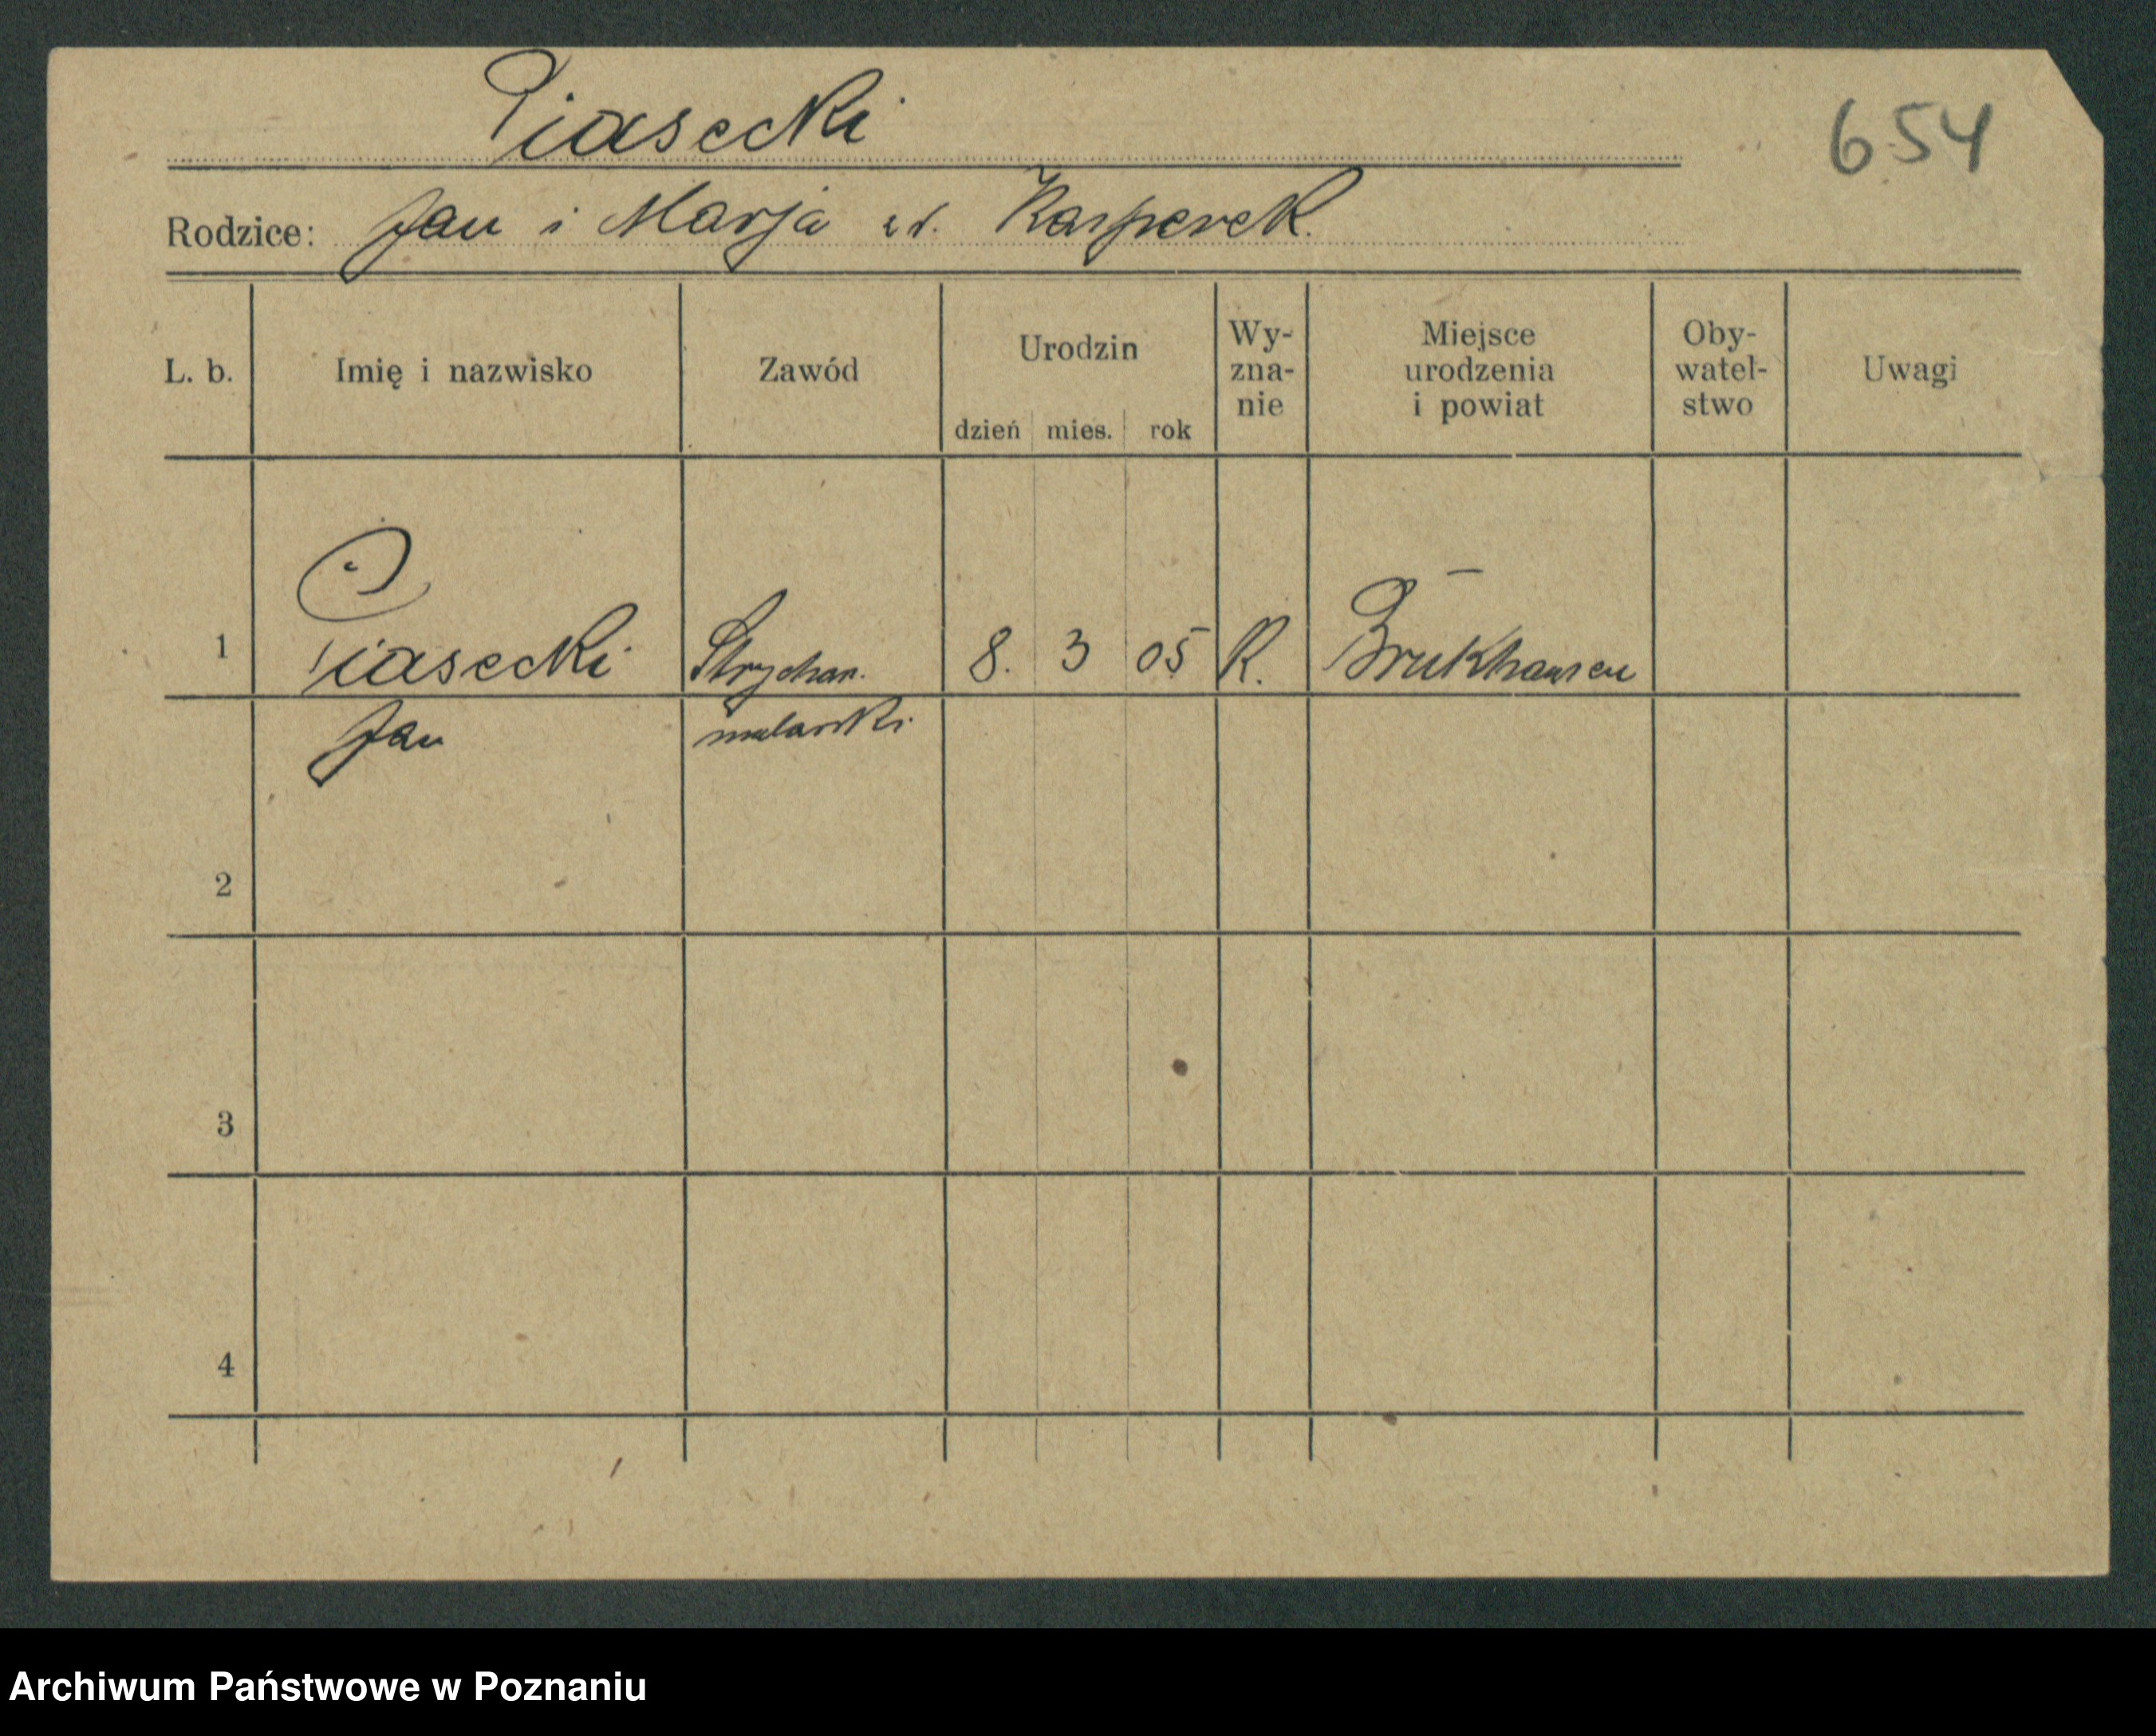 Piasecki
654
Rodzice: Jan i Marja zd. Kasperek.
L. b. Imię i nazwisko Zawód Urodzin dzień mies. rok Wy-zna-nie Miejsce urodzenia i powiat Oby-watel-stwo Uwagi
1 Piasecki Strychar. 8. 3 05 R. Brukhausen
Jan malarski
2
3
4
Archiwum Państwowe w Poznaniu